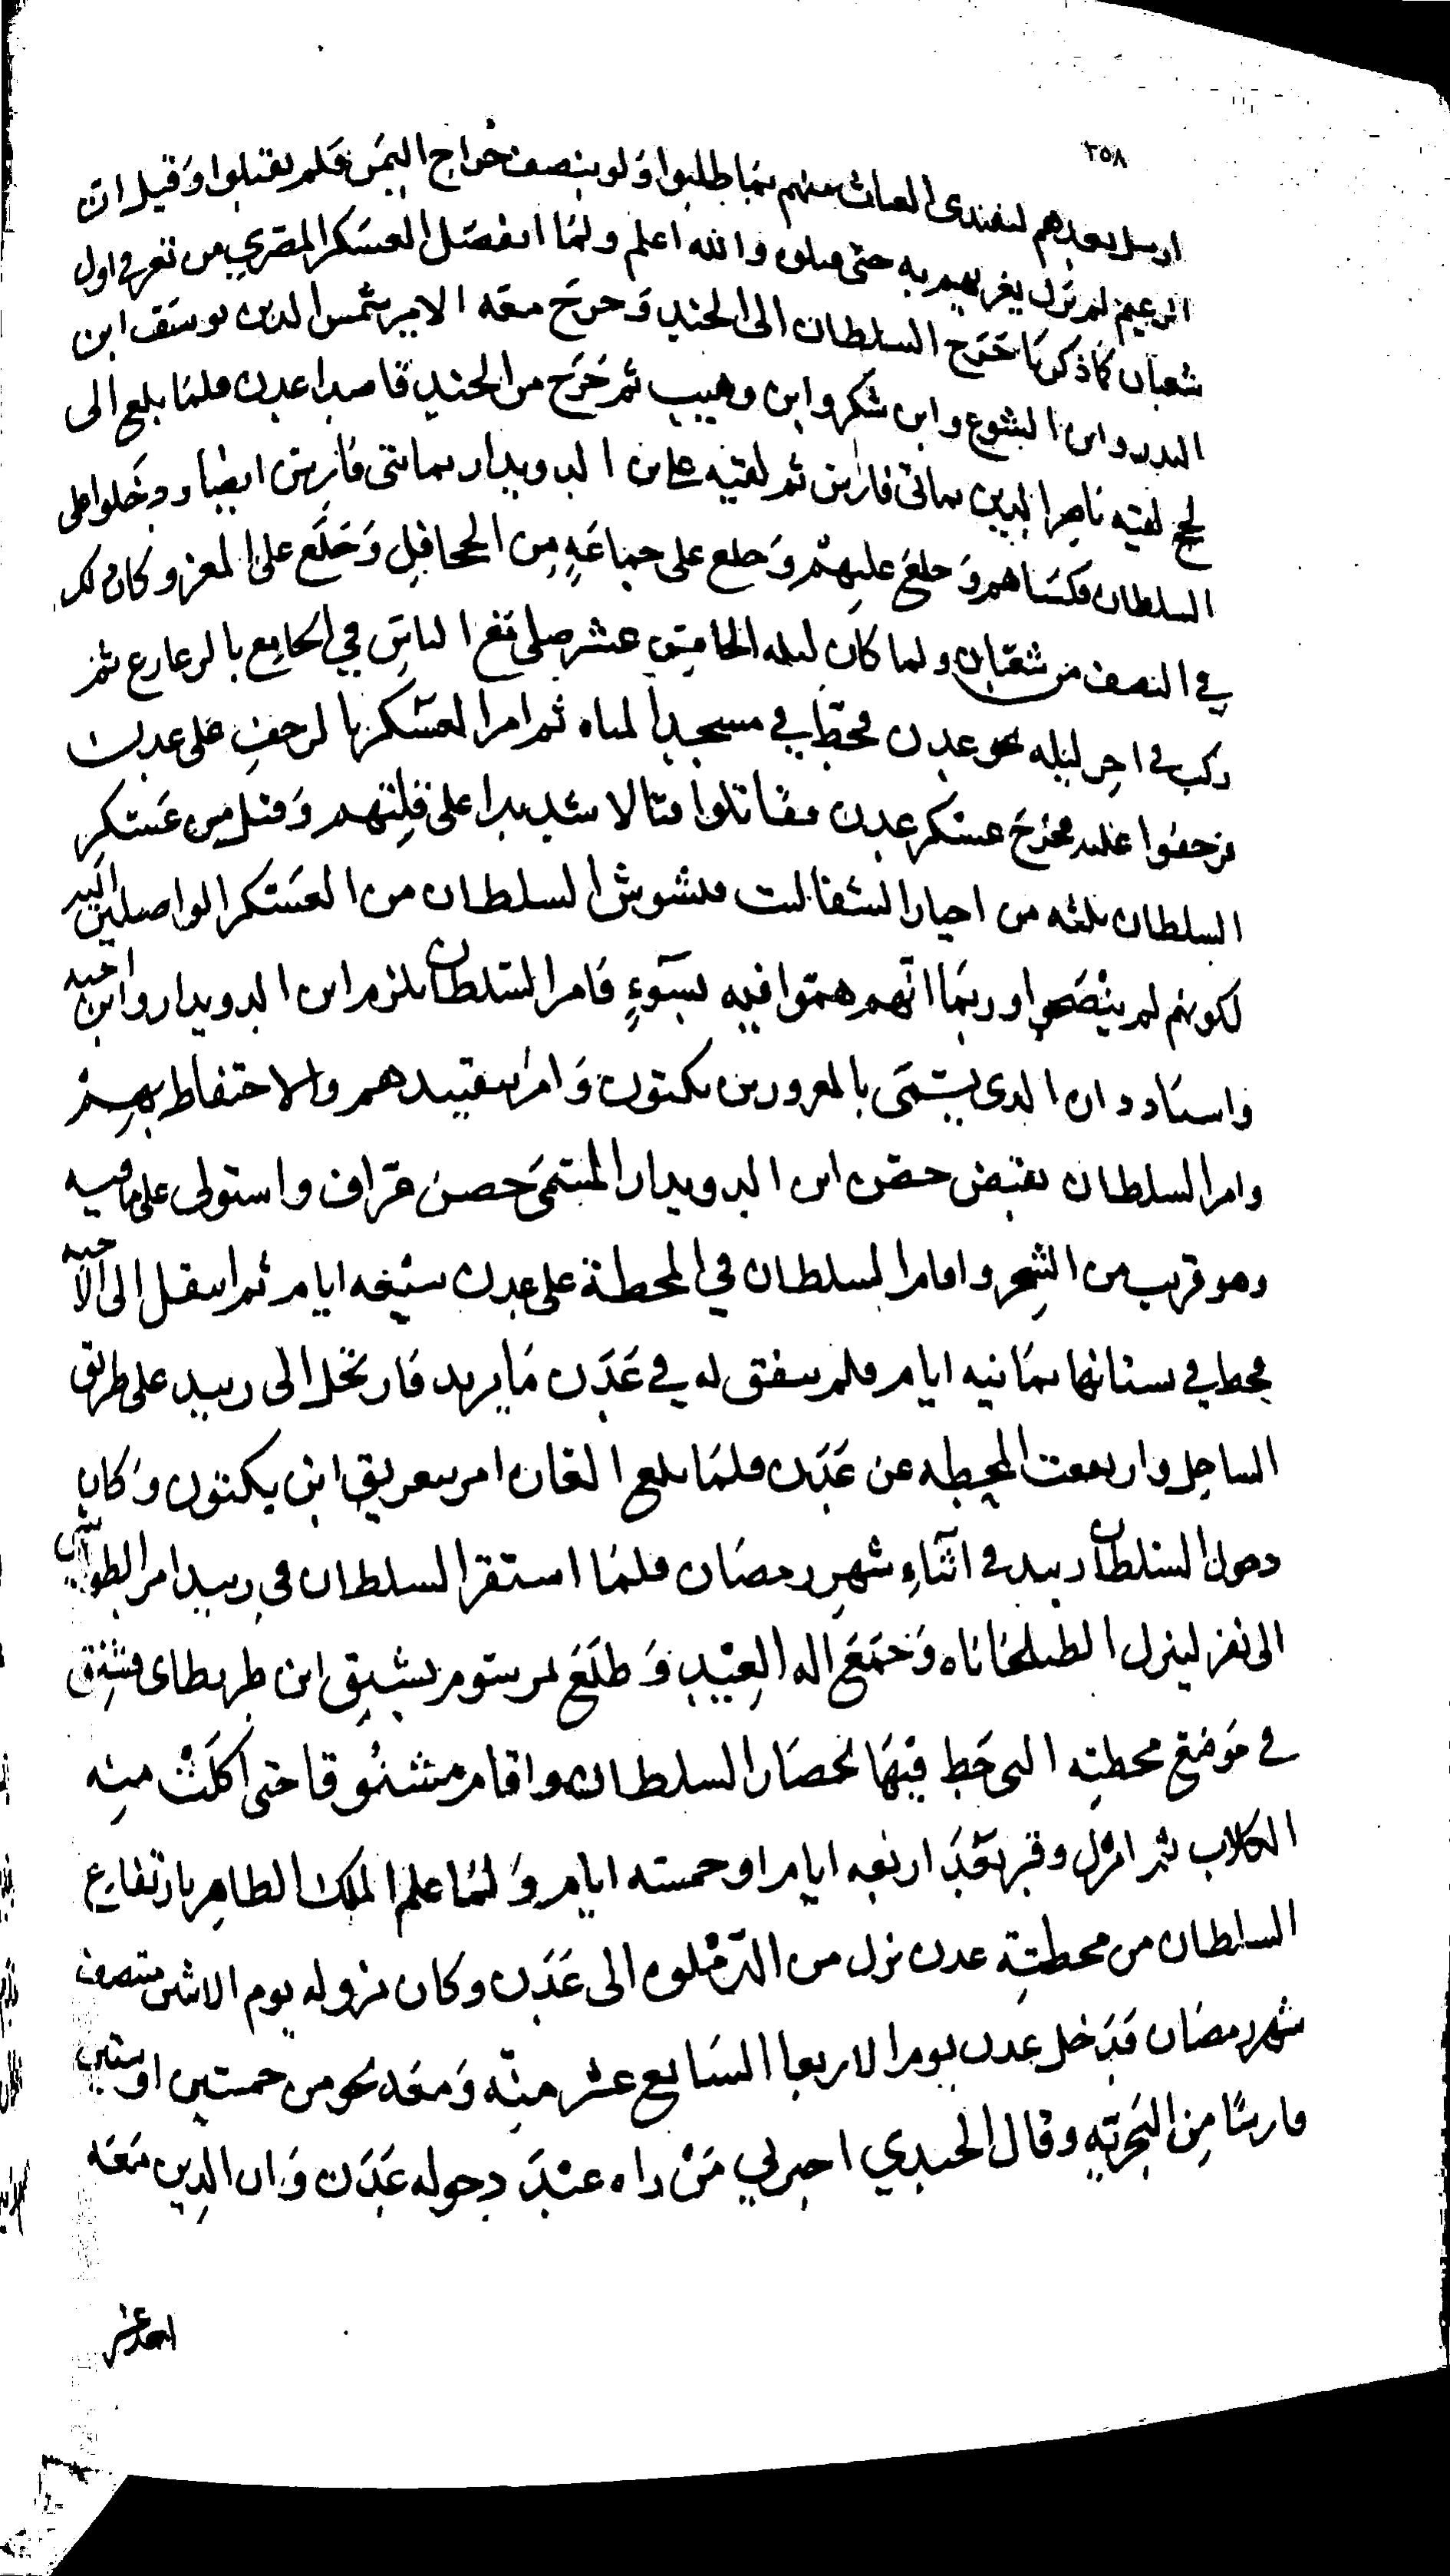 ٣٥٨
ارسل بعدهم ليفتدى الغياث منهم بما طلبوا ولو بنصف خراج اليمن فلم يقبلوا وقيل ان
الزعيم لم يزل يغريهم به حتى والله اعلم ولما انفصل العسكر المصري من تعز في اول
شعبان كما ذكرنا خرج السلطان الى الجند وخرج معه الامير شمس الدين يوسف ابن
البدر وابن الشوع وابن شكر وابن وهيب ثم خرج من الجند قاصدا عدن فلما بلغ الى
لحج لقيه ناصر الدين بمائتي فارس ثم لقيه علي بن الدويدار بمائتي فارس ايضا ودخلوا على
السلطان فكساهم وخلع عليهم وخلع على جماعة من الجحافل وخلع على المعز وكان ذلك
في النصف من شعبان ولما كان ليلة الخامس عشر صلى مع الناس في الجامع بالرعارع ثم
ركب في اخر ليله نحو عدن فحط في مسجد المباه ثم امر العسكر بالزحف على عدن
فزحفوا عليه فخرج عسكر عدن فقاتلوا قتالا شديدا على قلتهم وقتل من عسكر
السلطان ثلثه من اخيار الشفاليت فتشوش السلطان من العسكر الواصلين اليه
لكونهم لم ينصحوا وربما انهم هموا فيه بسوء فامر السلطان بلزم ابن الدويدار وابن اخيه
واستاد داره الذي يسمى بالمعرور بن بكتوت وامر بتقييدهم والاحتفاظ بهم
وامر السلطان بقبض حصن ابن الدويدار المسمى حصن عراف واستولى على ما فيه
وهو قريب من الشحر واقام السلطان في المحطة على عدن سبعه ايام ثم انتقل الى الاخبه
فحط في بستانها ثمانيه ايام فلم يتفق له في عدن ما يريد فارتحل الى زبيد على طريق
الساحل وارتفعت المحطه عن عدن فلما بلغ العاره امر بتغريق ابن بكتوت وكان
دخول السلطان زبيد في اثناء شهر رمضان فلما استقر السلطان في زبيد امر الطواشي
الى تعز لينزل الطبلخاناه وجمع اله العيد وطلع بمرسوم بشنق ابن طرنطاى فشنق
في موضع محطته التي حط فيها لحصار السلطان واقام مشنوقا حتى اكلت منه
الكلاب ثم انزل وقبر بعد اربعه ايام او خمسه ايام ولما علم الملك الظاهر بارتفاع
السلطان من محطته عدن نزل من الدملوه الى عدن وكان نزوله يوم الاثنين منتصف
شهر رمضان فدخل عدن يوم الاربعا السابع عشر منه ومعه نحو من خمسين او ستين
فارسا من البحريه وقال الجندي اخبرني من راه عند دخوله عدن وان الذين معه